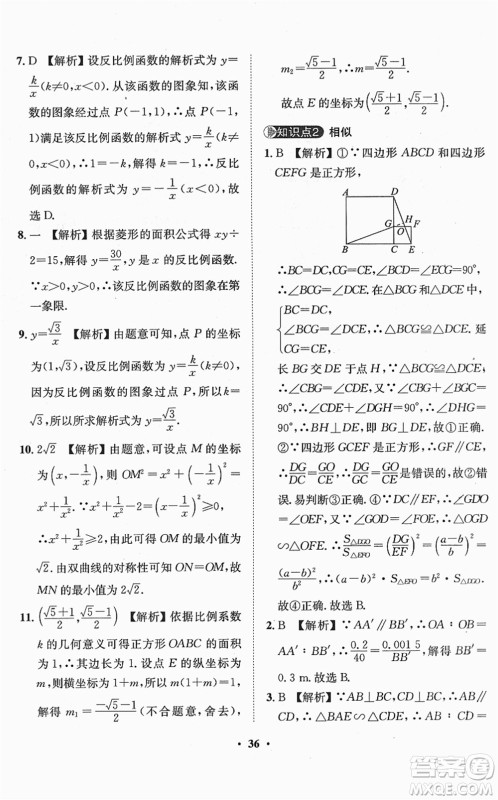 7. D 【解析】设反比例函数的解析式为 y=
k/x(k≠0,x<0).由函数的图象知,该函
数的图象经过点 P(-1,1),∴点 P(-1,
1)满足该反比例函数的解析式 y=k/x(k
≠0,x<0),解得 k=-1,∴y=-1/x,故
选 D.
8. 一 【解析】根据菱形的面积公式得 xy÷
2=15,变形得 y=30/x,∵k>0,∴图象在第
一、三象限.∵x>0,∴函数的图象在第
一象限.
9. y=√3/x 【解析】由题意可知,点 P 的坐标
为(1,√3),设反比例函数解析式为 y=k/x,
因为反比例函数的图象过点 P,所以 k=
√3,所以所求解析式为 y=√3/x.
10. 2√2 【解析】由题意,可设点 M 的坐标
为(x,-1/x),则 OM²=x²+(-1/x)²=
x²+1/x².∵x²+1/x²-2=(x-1/x)²≥0,
∴x²+1/x²≥2,由此可得 OM 的最小值为
√2.由双曲线的对称性可知 ON=OM,故
MN 的最小值为 2√2.
11. ((√5+1)/2,(√5-1)/2) 【解析】依据比例系数
k 的几何意义可得正方形 OABC 的面积
为 1,∴其边长为 1.设点 E 的纵坐标为
m,则横坐标为 1+m,∴m(1+m)=1,
解得 m₁=(-√5-1)/2(不符合题意,舍去),
m₂=(√5-1)/2.
故点 E 的坐标为((√5+1)/2,(√5-1)/2).
知识点2 相似
1. B 【解析】①∵四边形 ABCD 和四边形
CEFG 是正方形,
A D
G H F
O
B C E
∴BC=DC,CG=CE,∠BCD=∠ECG=90°,
∴∠BCG=∠DCE.在△BCG 和△DCE 中,
{BC=DC,
∠BCG=∠DCE, ∴△BCG≌△DCE.②延
CG=CE,
长 BG 交 DE 于点 H.∵△BCG≌△DCE,
∴∠CBG=∠CDE.又∵∠CBG+∠BGC=
90°,∴∠CDE+∠DGH=90°,∴∠DHG=
90°,∴BH⊥DE,∴BG⊥DE,∴②正确.
③∵四边形 GCEF 是正方形,∴GF∥CE,
∴DG/DC=GO/CE,∴DG/GC=GO/CE是错误的,故③错
误.易判断③正确.④∵DC∥EF,∴∠GDO
=∠OEF.∵∠GOD=∠FOE,∴△OGD
∽△OFE,∴S△DGO/S△EFO=(DG/EF)²=((a-b)/b)²
=(a-b)²/b²,∴(a-b)²·S△EFO=b²·S△DGO,
∴④正确.故选 B.
2. B 【解析】∵AA′∥BB′,∴OA∶OB=
AA′∶BB′,∴0.2/40=0.001 5/BB′,∴BB′=
0.3 m.故选 B.
3. B 【解析】∵AD⊥BC,BE⊥AC,∴∠ADC
=∠BDF=∠BEC=90°,∴∠DAC+∠C
· 36 ·